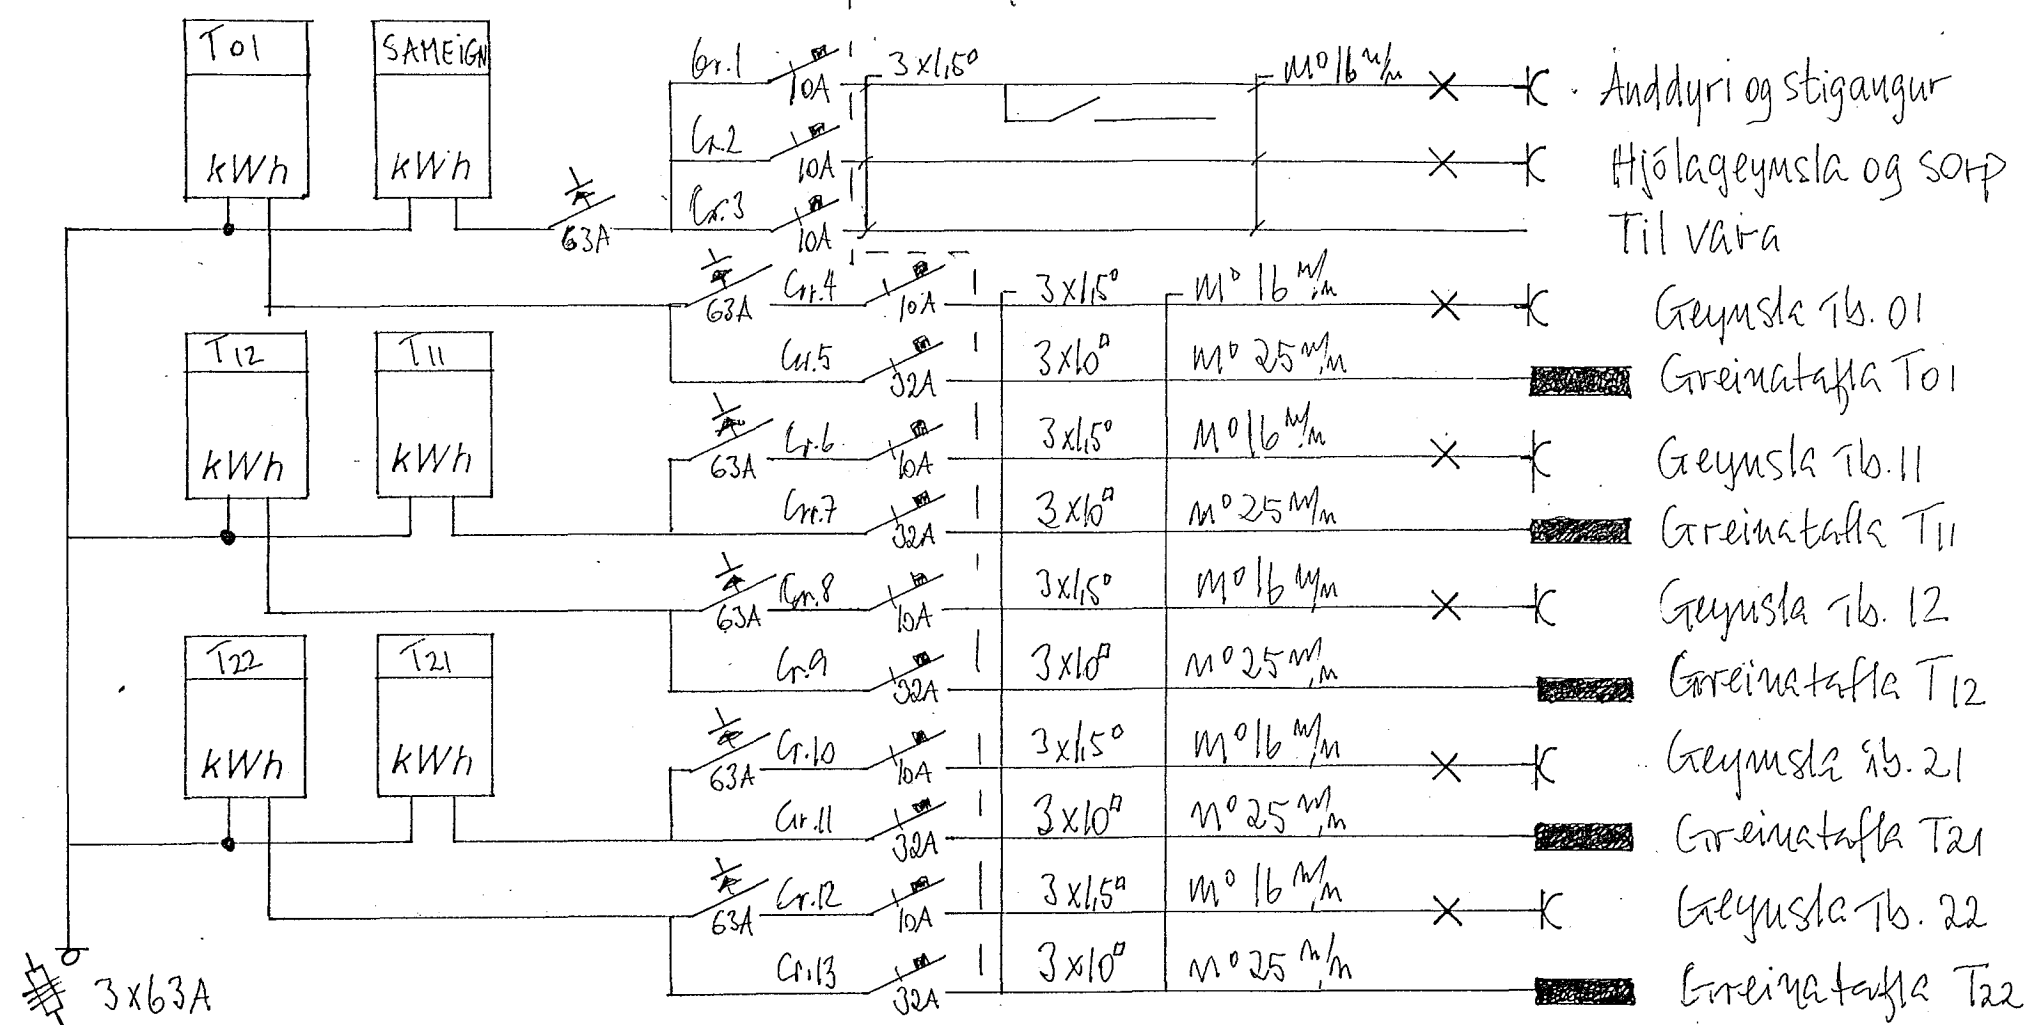 T01 SAMEIGN Gr.1 10A 3x1,5▫ M° 16 m/m Anddyri og stigangur
kWh kWh Gr.2 10A Hjólageymsla og sorp
63A Gr.3 10A Til vara
63A Gr.4 10A 3x1,5▫ M° 16 m/m Geymsla íb. 01
T12 T11 Gr.5 32A 3x10▫ M° 25 m/m Greinatafla T01
kWh kWh 63A Gr.6 10A 3x1,5▫ M° 16 m/m Geymsla íb. 11
Gr.7 32A 3x10▫ M° 25 m/m Greinatafla T11
63A Gr.8 10A 3x1,5▫ M° 16 m/m Geymsla íb. 12
T22 T21 Gr.9 32A 3x10▫ M° 25 m/m Greinatafla T12
kWh kWh 63A Gr.10 10A 3x1,5▫ M° 16 m/m Geymsla íb. 21
Gr.11 32A 3x10▫ M° 25 m/m Greinatafla T21
63A Gr.12 10A 3x1,5▫ M° 16 m/m Geymsla íb. 22
3x63A Gr.13 32A 3x10▫ M° 25 m/m Greinatafla T22